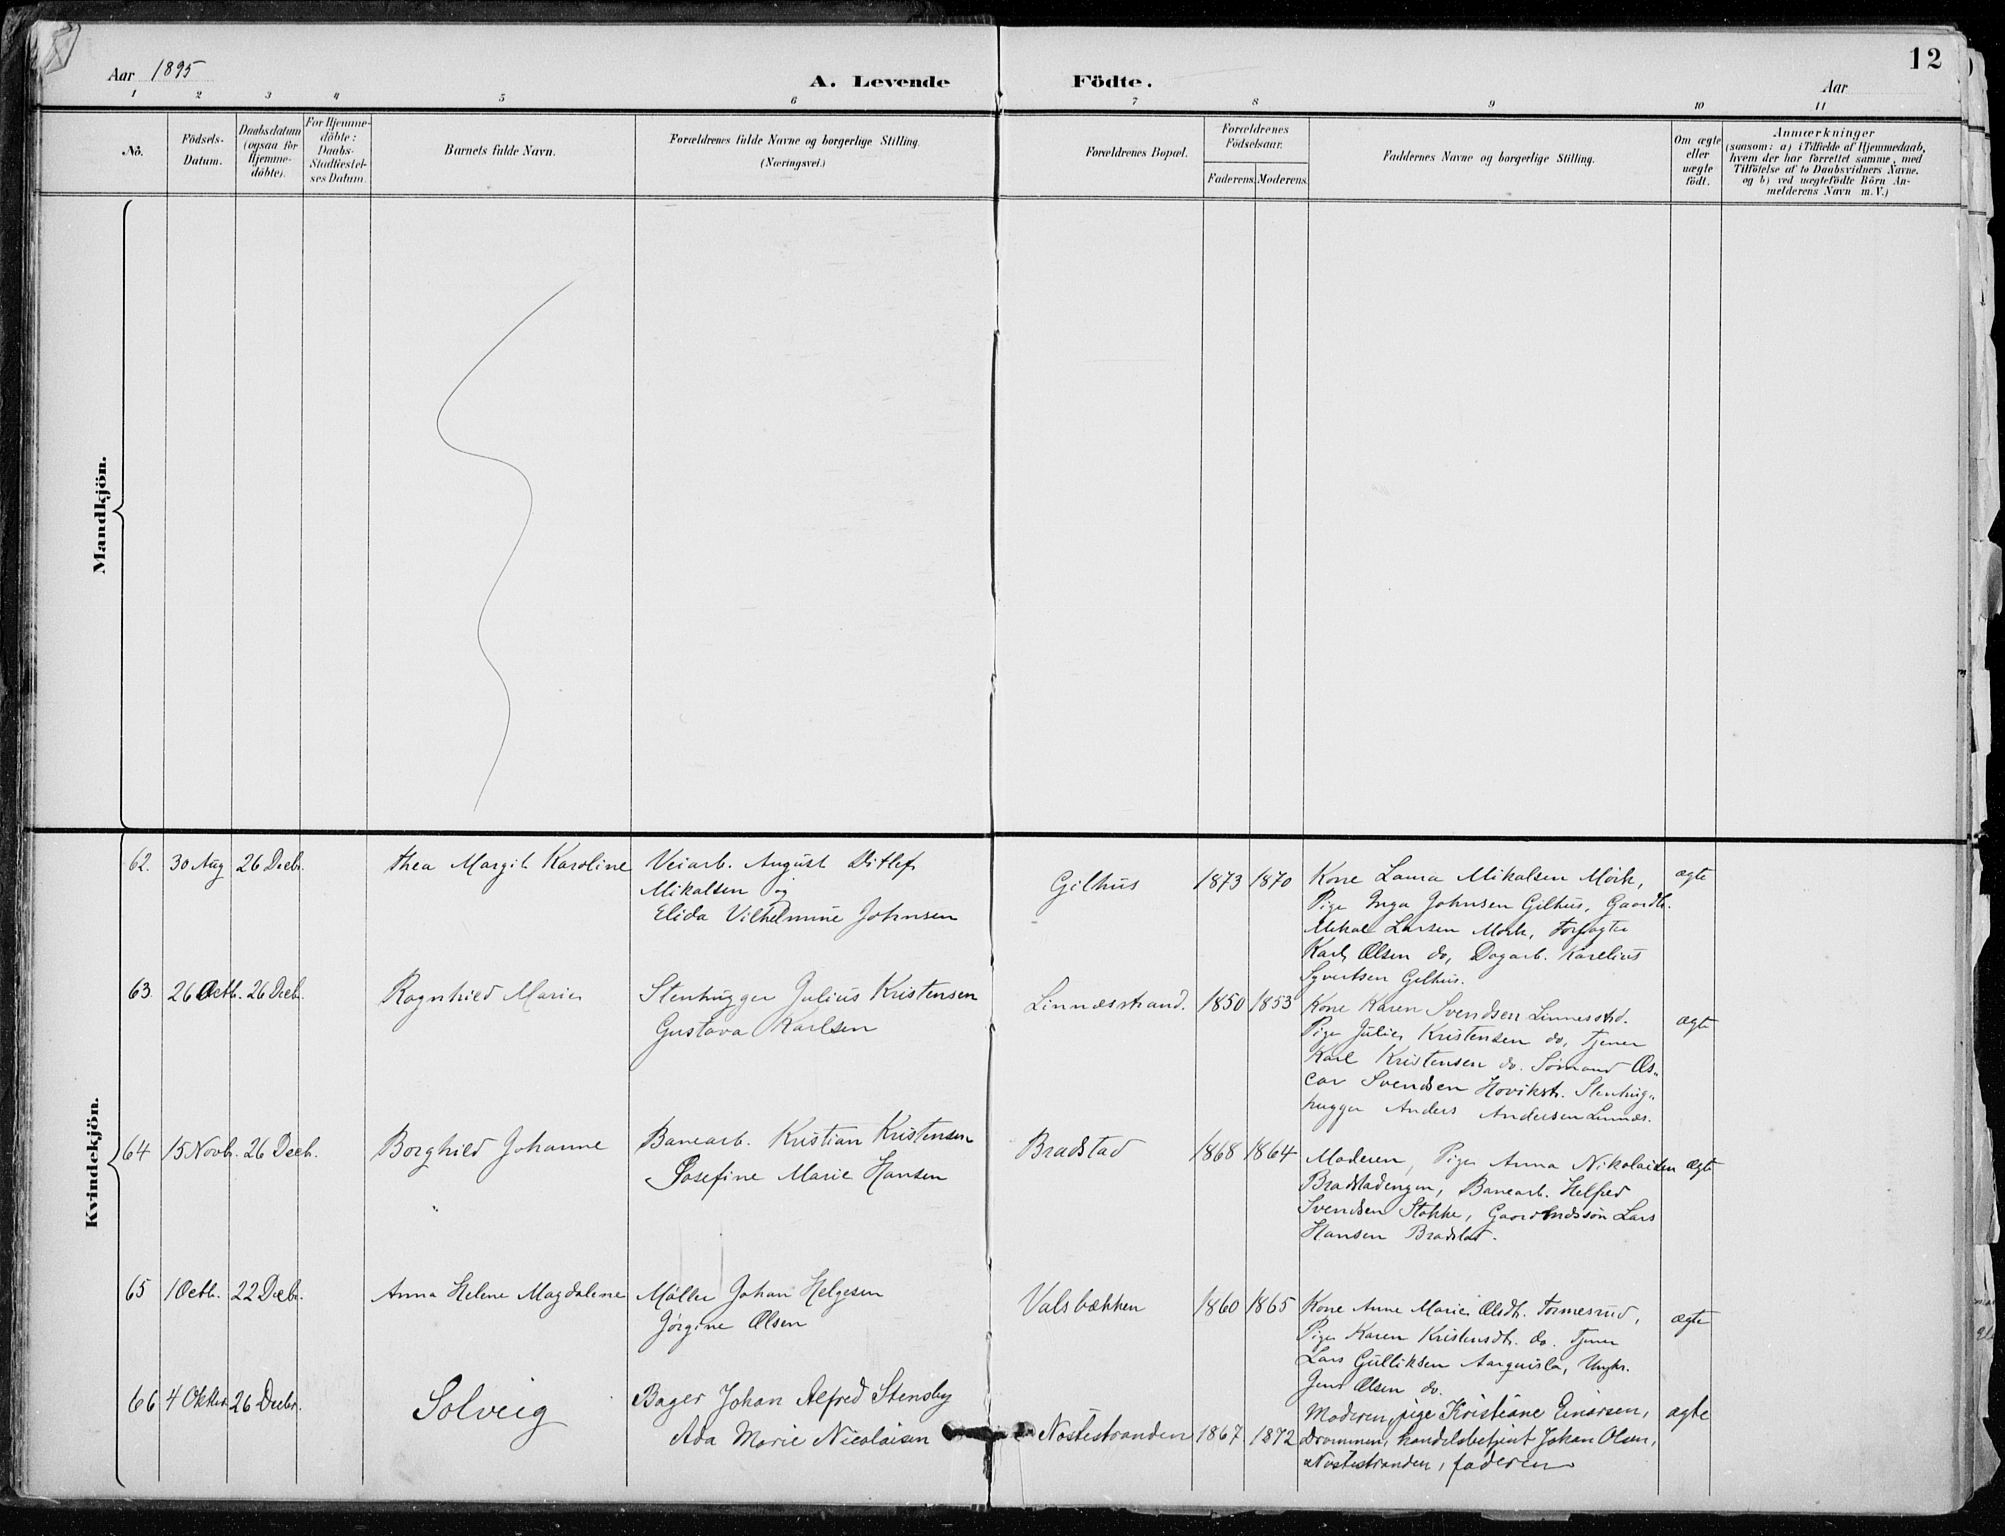 12
Aar 1895
A. Levende Födte.
Aar
1 2 3 4 5 6 7 8 9 10 11
Nô.
Födsels-Datum.
Daabsdatum (ogsaa for Hjemme-döbte).
For Hjemme-döbte: Daabs-Stadfæstel-ses Datum.
Barnets fulde Navn.
Forældrenes fulde Navne og borgerlige Stilling.
(Næringsvei.)
Forældrenes Bopæl.
Forældrenes Födselsaar.
Faderens. Moderens.
Faddernes Navne og borgerlige Stilling.
Om ægte eller uægte födt.
Anmærkninger
(saasom: a) i Tilfælde af Hjemmedaab, hvem der har forrettet samme, med Tilföielse af to Daabsvidners Navne, og b) ved uægtefödte Börn An-melderens Navn m. V.)
Mandkjön.
Kvindekjön.
62. 30 Aug 26 Decbr. Thea Margit Karoline Veiarb. August Ditlef
Mikalsen og
Elida Vilhelmine Johnsen
Gilhus 1873 1870
Kone Laura Mikalsen Mörk,
Pige Inga Johnsen Gilhus, Gaardbr.
Mikal Larsen Mörk, Forpagter
Karl Olsen do, Dagarb. Karelius
Syvertsen Gilhus.
ægte
63 26 Octb. 26 Decb. Ragnhild Marie Stenhugger Julius Kristensen
Gustava Karlsen
Linnesstrand. 1850 1853
Kone Karen Svendsen Linnesstrd.
Pige Julie Kristensen do, Tjener
Karl Kristensen do. Sömand Os-
car Svendsen Hovikstr. Stenhug-
hugger Anders Andersen Linnes.
ægte
64 15 Novb. 26 Decb. Borghild Johanne Banearb. Kristian Kristensen
Josefine Marie Hansen
Bradstad 1868 1864
Moderen, Pige Anna Nikolaisen
Bradstadengen, Banearb. Helfred
Svendsen Stokke, Gaardmdssön Lars
Hansen Bradstad.
ægte
65 1 Octb. 22 Decbr. Anna Helene Magdalene Möller Johan Helgesen
Jörgine Olsen
Valsbækken 1860 1865
Kone Anne Marie Olsdtr. Tormesrud,
Pige Karen Kristensdtr. do. Tjener
Lars Gulliksen Aarquisla, Ungkr.
Jens Olsen do.
ægte
66 4 Oktbr. 26 Decbr. Solveig Bager Johan Alfred Stensby
Ada Marie Nicolaisen
Nøstestranden 1867 1872
Moderen, pige Kristiane Einarsen,
Drammen, handelsbetjent Johan Olsen,
Nøstestranden, faderen
ægte